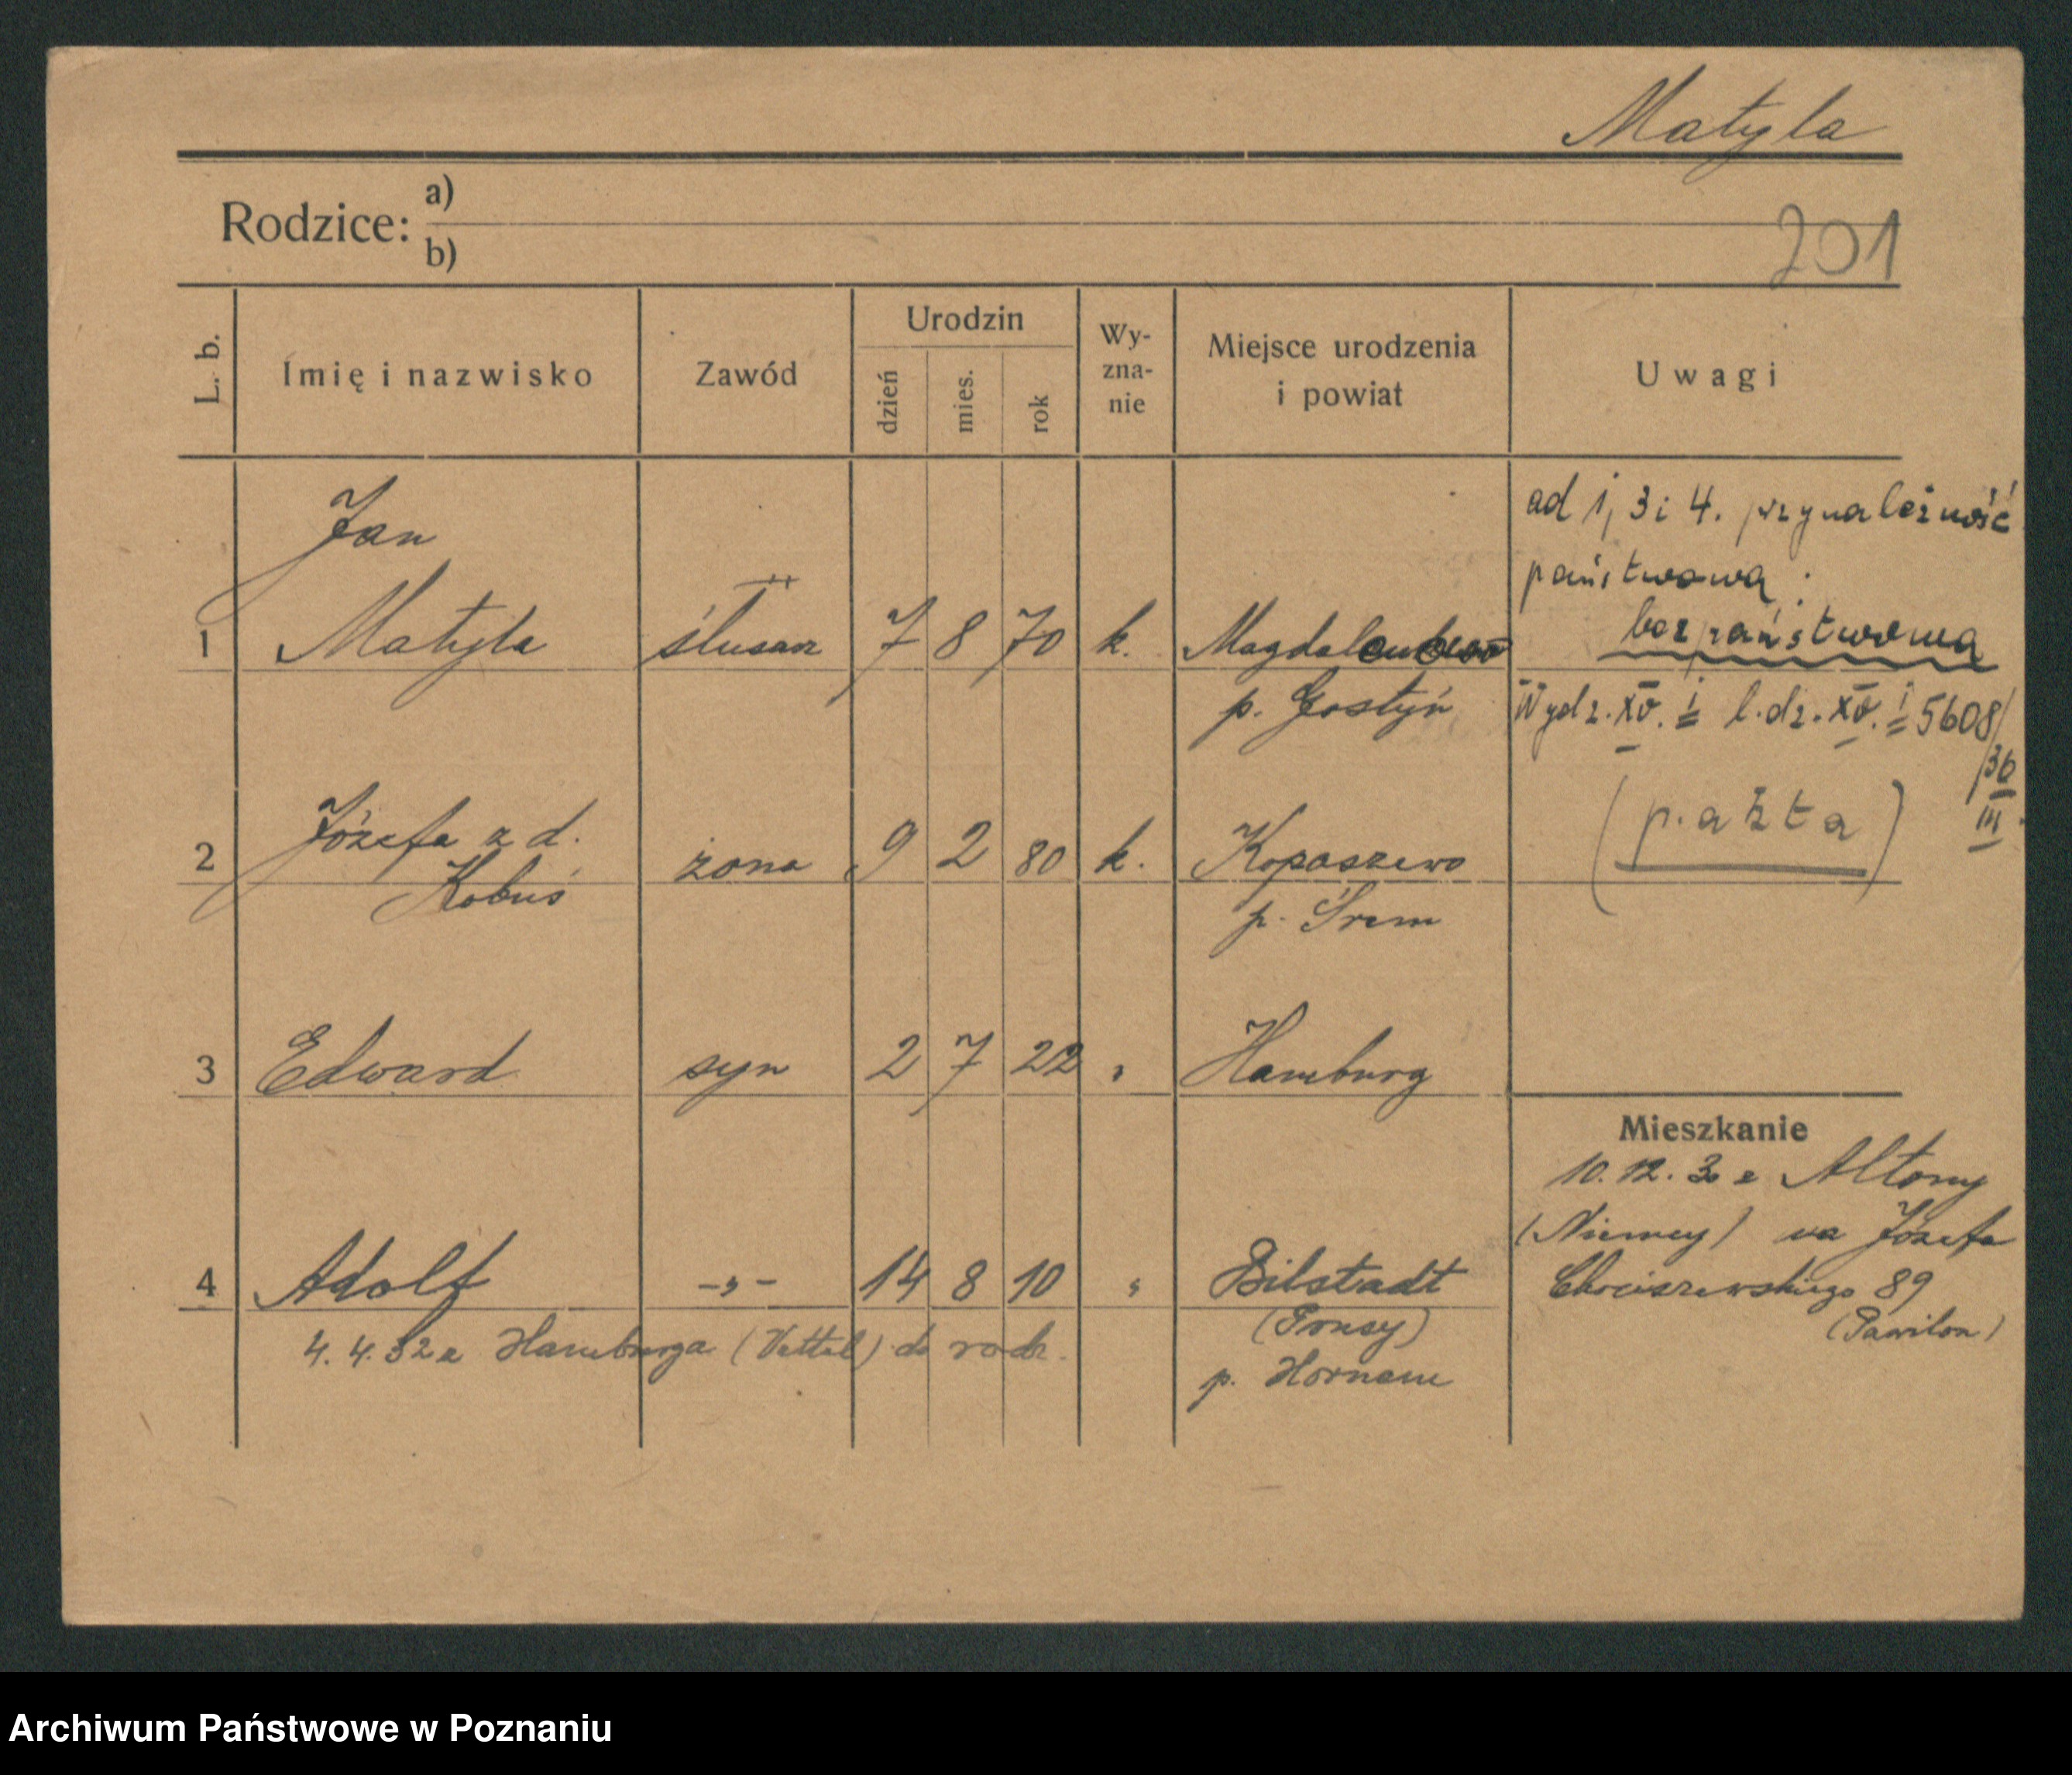 Matyla
Rodzice: a)
b)
201
L. b. Imię i nazwisko Zawód Urodzin dzień mies. rok Wy-zna-nie Miejsce urodzenia i powiat Uwagi
Jan
1 Matyla ślusarz 7 8 70 k.
p. Gostyń
ad 1, 3 i 4. przynależność
państwowa:
bezpaństwowa
Wydz. XV. l. dz. XV. 5608/
/36
III
2 Józefa z d. żona 9 2 80 k. Kopaszewo
Kobuś p. Śrem
3 Edward syn 2 7 22 " Hamburg
Mieszkanie
10.12.30 z Altony
(Niemcy) na Józefa
4 Adolf -"- 14 8 10 " Bilstadt
Chociszewskiego 89
(Pawilon)
4.4.32 z Hamburga do rodz.
p.
Archiwum Państwowe w Poznaniu